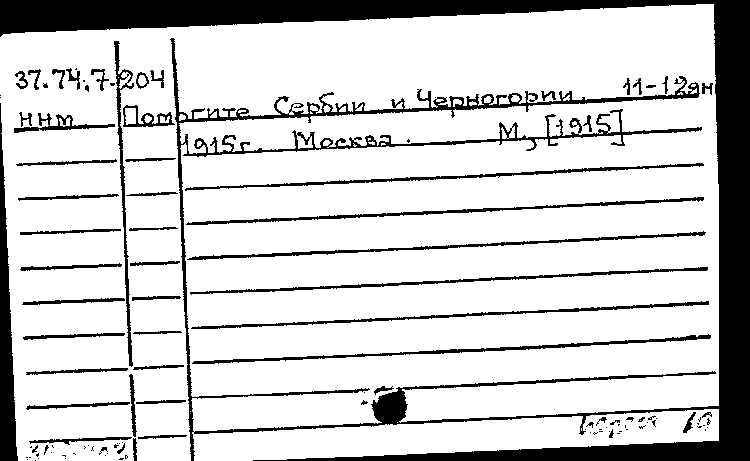 37.74.7.204
ннм Помогите Сербии и Черногории. 11-12 янв
1915г. Москва. М., [1915]